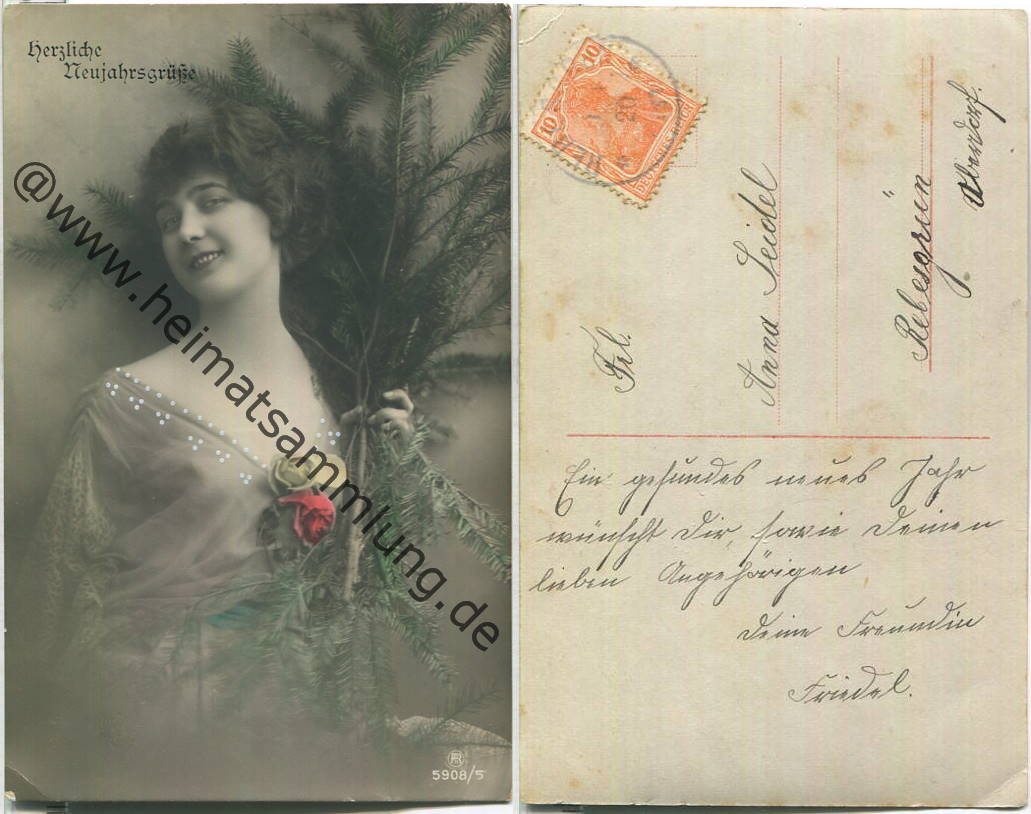 Herzliche
Neujahrsgrüße
@www.heimatsammlung.de
5908/5
10
10
DEUTSCHES REICH
Frl.
Anna Seidel
Rebesgrün
Ein gesundes neues Jahr
wünscht Dir, sowie Deinen
lieben Angehörigen
Deine Freundin
Friedel.